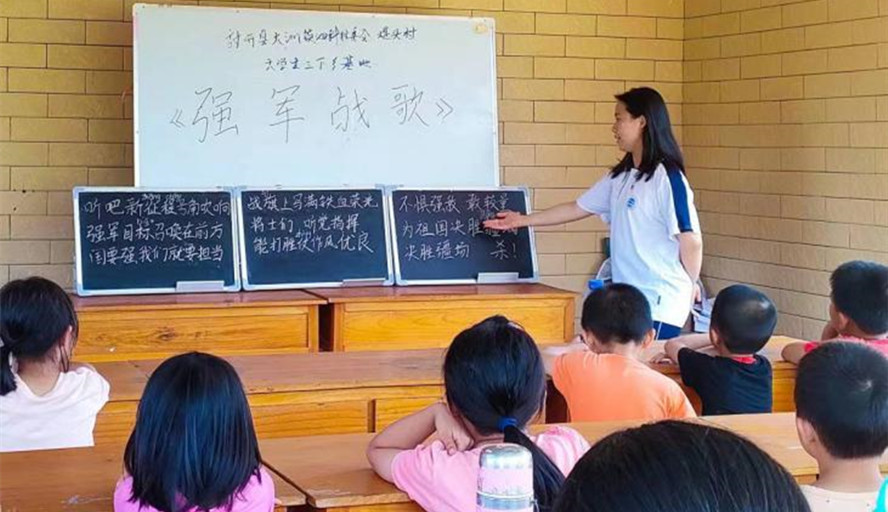 封开县大洲镇 村委会
大学生三下乡基地
《强军战歌》
听吧新征程号角吹响
强军目标召唤在前方
国要强我们就要担当
战旗上写满铁血荣光
将士们 听党指挥
能打胜仗作风优良
不惧强敌 敢较量
为祖国决胜疆场
决胜疆场 杀!